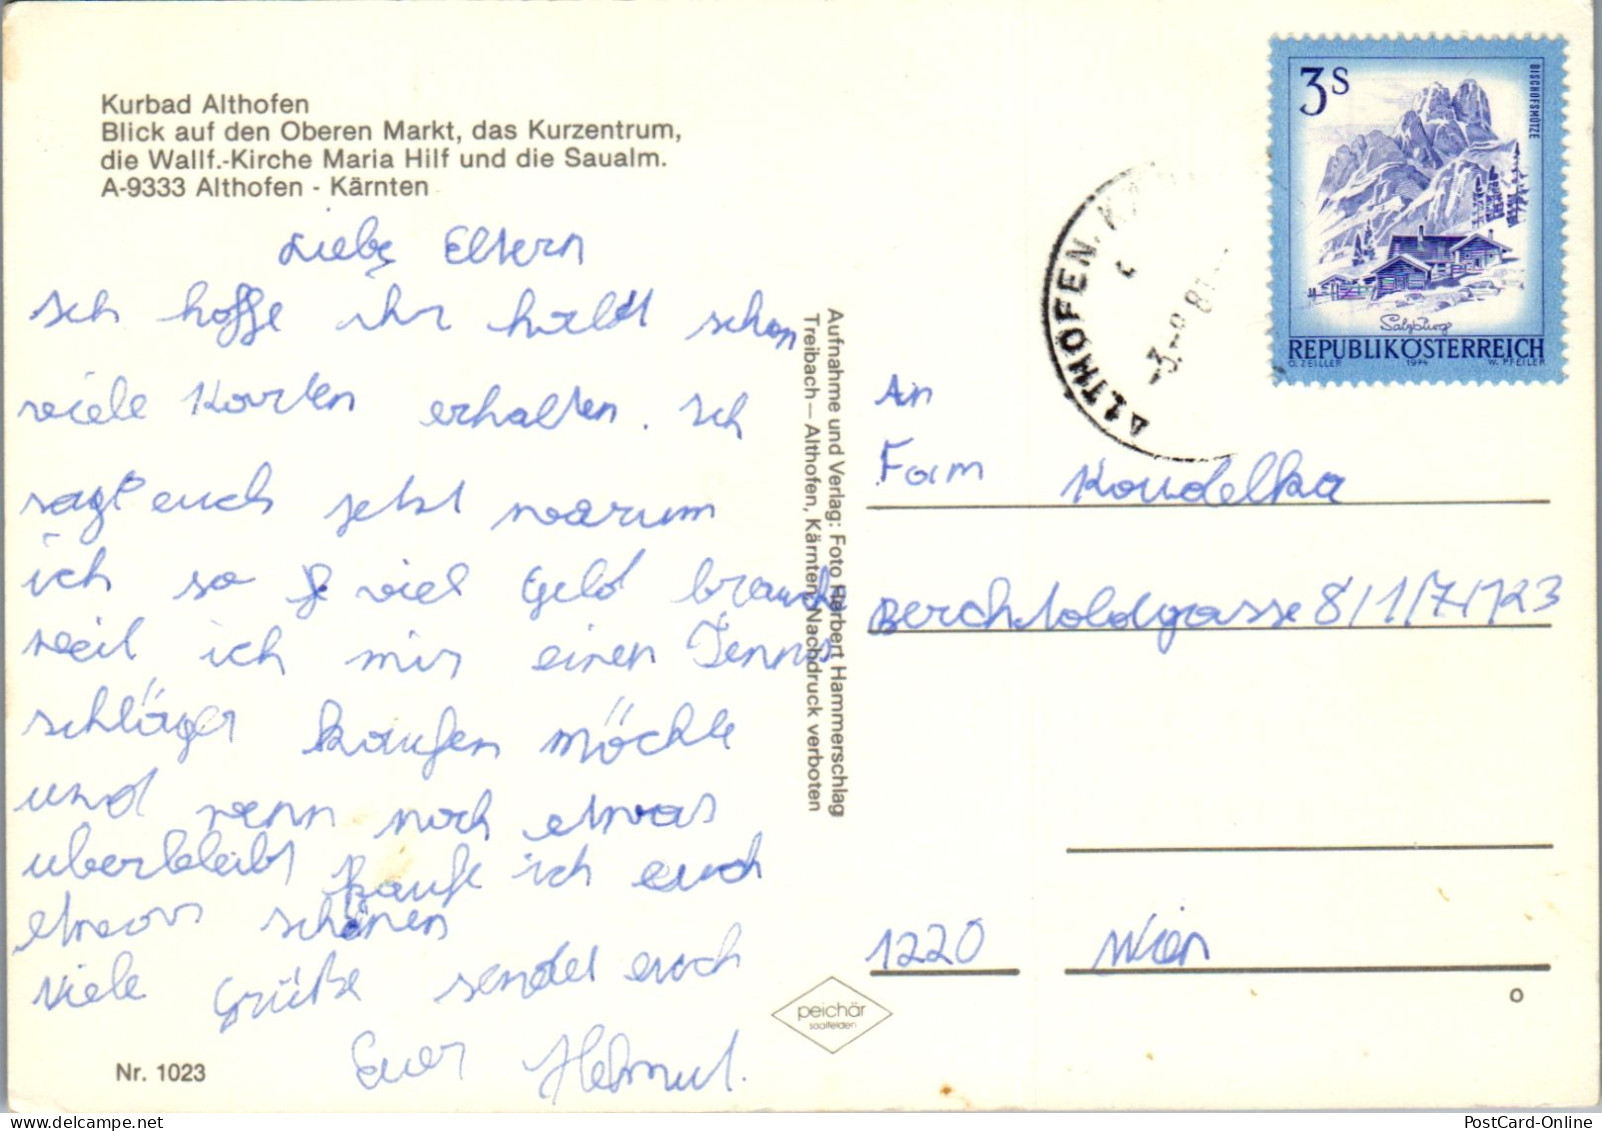 Kurbad Althofen
Blick auf den Oberen Markt, das Kurzentrum,
die Wallf.-Kirche Maria Hilf und die Saualm.
A-9333 Althofen - Kärnten
Liebe Eltern
Ich hoffe ihr habt schon
viele Karten erhalten. Ich
sagt euch jetzt warum
ich so viel Geld brauch
weil ich mir einen Tennis
schläger kaufen möchte
und wenn noch etwas
uberbleibt kaufe ich euch
etwas schönen
Viele Grüße sendet euch
Euer Helmut.
Nr. 1023
Aufnahme und Verlag: Foto Herbert Hammerschlag
Treibach — Althofen, Kärnten, Nachdruck verboten
peichär
saalfelden
3S
BISCHOFSMÜTZE
Salzburg
REPUBLIK ÖSTERREICH
O. ZEILLER 1974 W. PFEILER
ALTHOFEN, K
3.-8.81
An
Fam Koudelka
Berchtoldgasse 8/1/7/123
1220 Wien
o
PostCard-Online